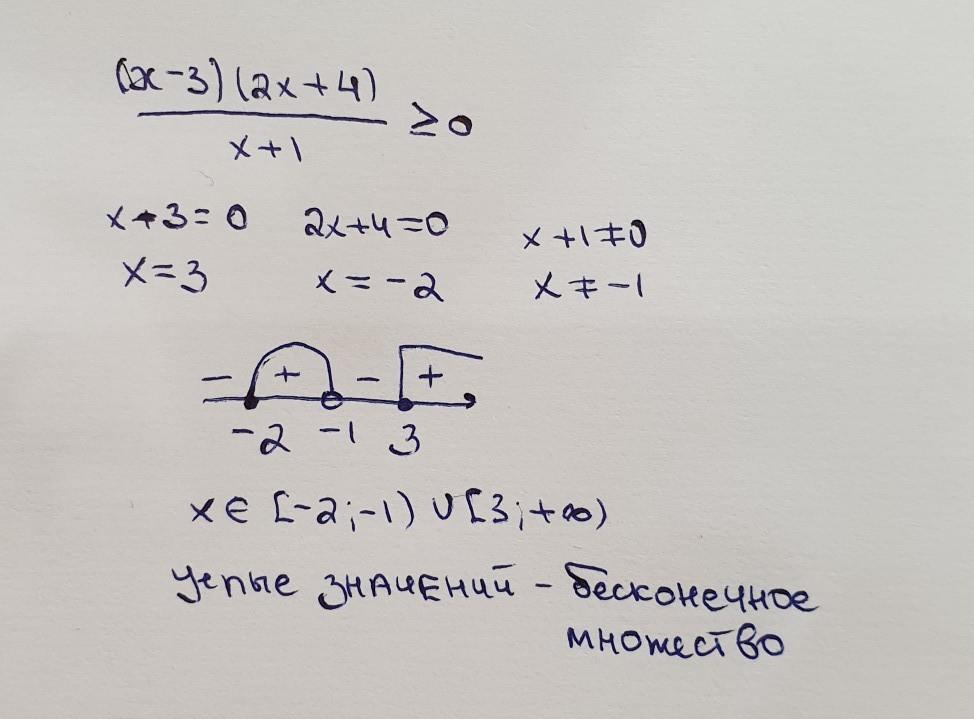 (x-3)(2x+4)
x+1
≥0
x-3=0 2x+4=0 x+1≠0
x=3 x=-2 x≠-1
- + - +
-2 -1 3
x∈[-2;-1)∪[3;+∞)
целые значений - бесконечное
множество